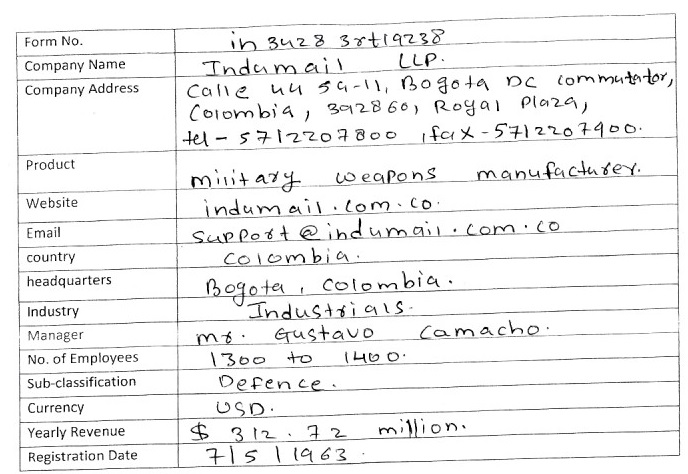 Form No. in 3428 3rt19238
Company Name Indumail LLP.
Company Address Calle 44 59-11, Bogota DC commutator,
Colombia, 392860, Royal Plaza,
tel - 5712207800 , fax - 5712207900.
Product military weapons manufacturer.
Website indumail.com.co.
Email support@indumail.com.co
country colombia.
headquarters Bogota, colombia.
Industry Industrials.
Manager mr. Gustavo Camacho.
No. of Employees 1300 to 1400.
Sub-classification Defence.
Currency USD.
Yearly Revenue $ 312.72 million.
Registration Date 7/5/1963.